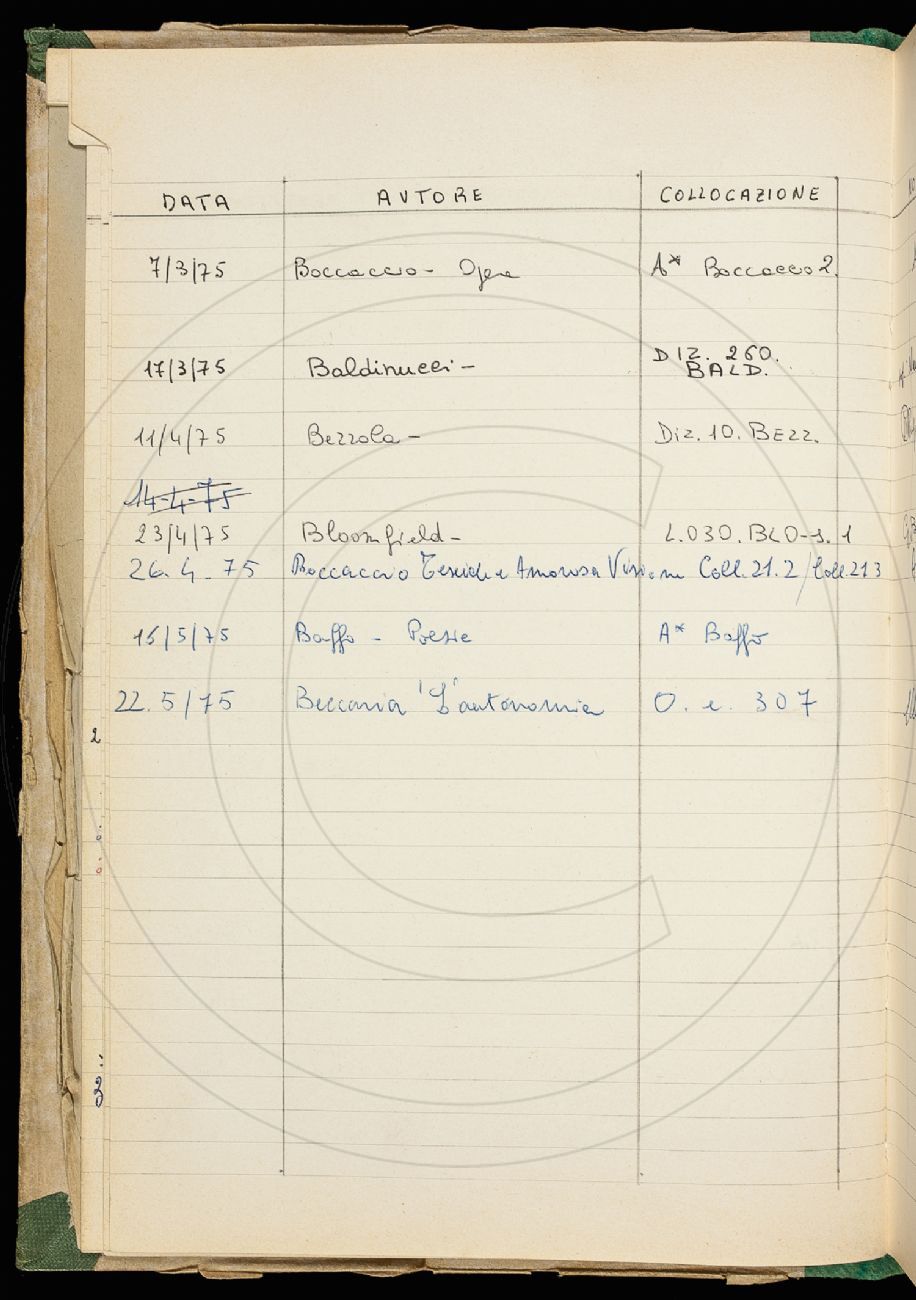 DATA AUTORE COLLOCAZIONE
7/3/75 Boccaccio - Opere A* Boccaccio 2.
17/3/75 Baldinucci - DIZ. 260.
BALD.
11/4/75 Bezzola - Diz. 10. BEZZ.
14-4-75
23/4/75 Bloomfield - L.030. BLO-s. 1
26. 4 - 75 Boccaccio Teseide e Amorosa Visione Coll. 21.2/Coll. 213
15/5/75 Baffo - Poesie A* Baffo
22. 5/75 Beccaria "L'autonomia O. e. 307
2